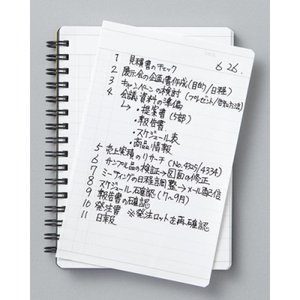 6.26.
1 見積書のチェック
2 展示会の企画書作成(目的/日程)
3 キャンペーンの検討(プレゼント/告知方法)
4 会議資料の準備
↳・提案書(5部)
・報告書
・スケジュール表
・商品情報
5 売上実績のリサーチ(No.4325/4334)
6 サンプル品の検証→図面の修正
7 ミーティングの日程調整→メール配信
8 スケジュール確認(7〜9月)
9 報告書の確認
10 発注書 ※発注ロットを再確認
11 日報